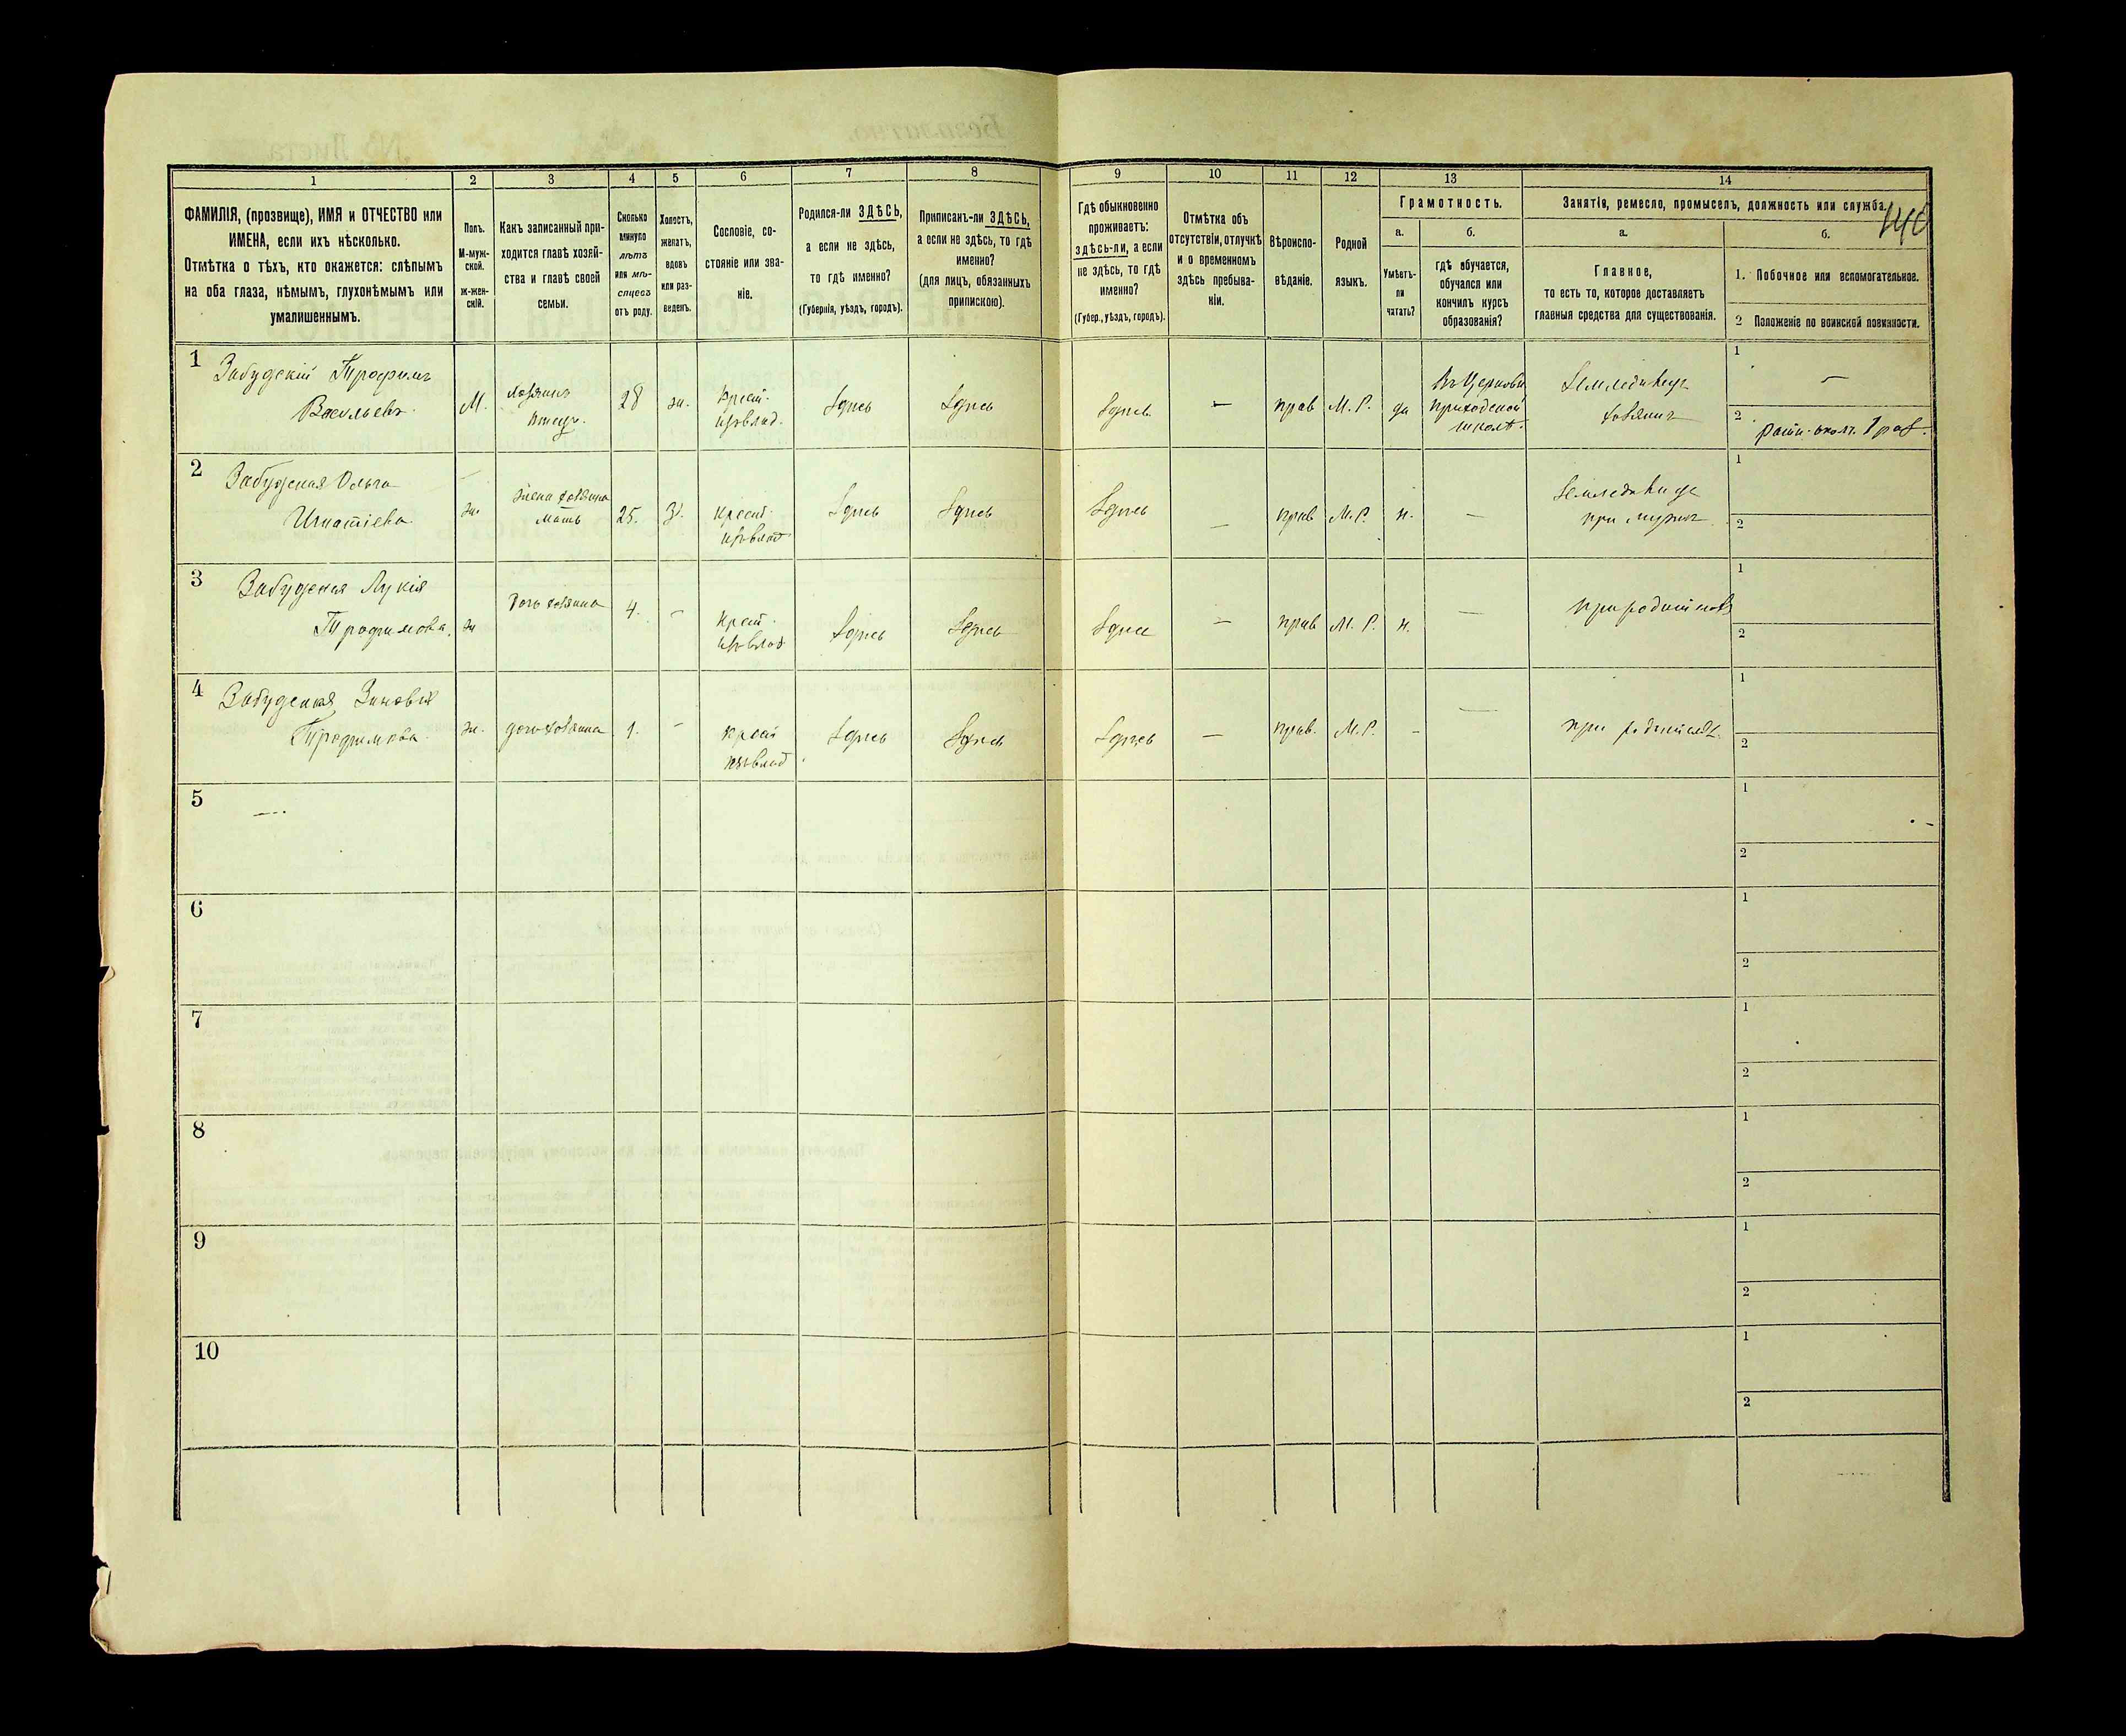 1 2 3 4 5 6 7 8 9 10 11 12 13 14
ФАМИЛІЯ, (прозвище), ИМЯ и ОТЧЕСТВО или
ИМЕНА, если ихъ нѣсколько.
Отмѣтка о тѣхъ, кто окажется: слѣпымъ
на оба глаза, нѣмымъ, глухонѣмымъ или
умалишеннымъ.
Полъ.
М-муж-
ской.
ж-жен-
скій.
Какъ записанный при-
ходится главѣ хозяй-
ства и главѣ своей
семьи.
Сколько
минуло
лѣтъ
или мѣ-
сяцевъ
отъ роду.
Холостъ,
женатъ,
вдовъ
или раз-
веденъ.
Сословіе, со-
стояніе или зва-
ніе.
Родился-ли ЗДѢСЬ,
а если не здѣсь,
то гдѣ именно?
(Губернія, уѣздъ, городъ).
Приписанъ-ли ЗДѢСЬ,
а если не здѣсь, то гдѣ
именно?
(для лицъ, обязанныхъ
припискою).
Гдѣ обыкновенно
проживаетъ:
здѣсь-ли, а если
не здѣсь, то гдѣ
именно?
(Губер., уѣздъ, городъ).
Отмѣтка объ
отсутствіи, отлучкѣ
и о временномъ
здѣсь пребыва-
ніи.
Вѣроиспо-
вѣданіе.
Родной
языкъ.
Грамотность.
а.
Умѣетъ-
ли
читать?
б.
гдѣ обучается,
обучался или
кончилъ курсъ
образованія?
Занятія, ремесло, промыселъ, должность или служба.
а.
Главное,
то есть то, которое доставляетъ
главныя средства для существованія.
б.
1. Побочное или вспомогательное.
2 Положеніе по воинской повинности.
1
Забудскій Трофимъ
Васильевъ.
М.
хозяинъ
28
ж.
крест.
Здѣсь
Здѣсь
Здѣсь
—
прав
М. Р.
да
Въ Церковн
приходской
школѣ.
Земледѣлецъ
хозяинъ
1
—
2
ратн. опол. 1 раз.
2
Забудская Ольга
Игнатіева
ж.
жена хозяина
мать
25.
З.
крест.
Здѣсь
Здѣсь
Здѣсь
—
прав
М. Р.
н.
—
при мужѣ
1
2
3
Забудская Лукія
Трофимова.
ж
дочь хозяина
4.
—
крест.
Здѣсь
Здѣсь
Здѣсь
—
прав
М. Р.
н.
—
1
2
4
Забудская Зиновія
Трофимова.
ж.
дочь хозяина
1.
—
крест
Здѣсь
Здѣсь
Здѣсь
—
прав.
М. Р.
-
—
1
2
5
1
2
6
1
2
7
1
2
8
1
2
9
1
2
10
1
2